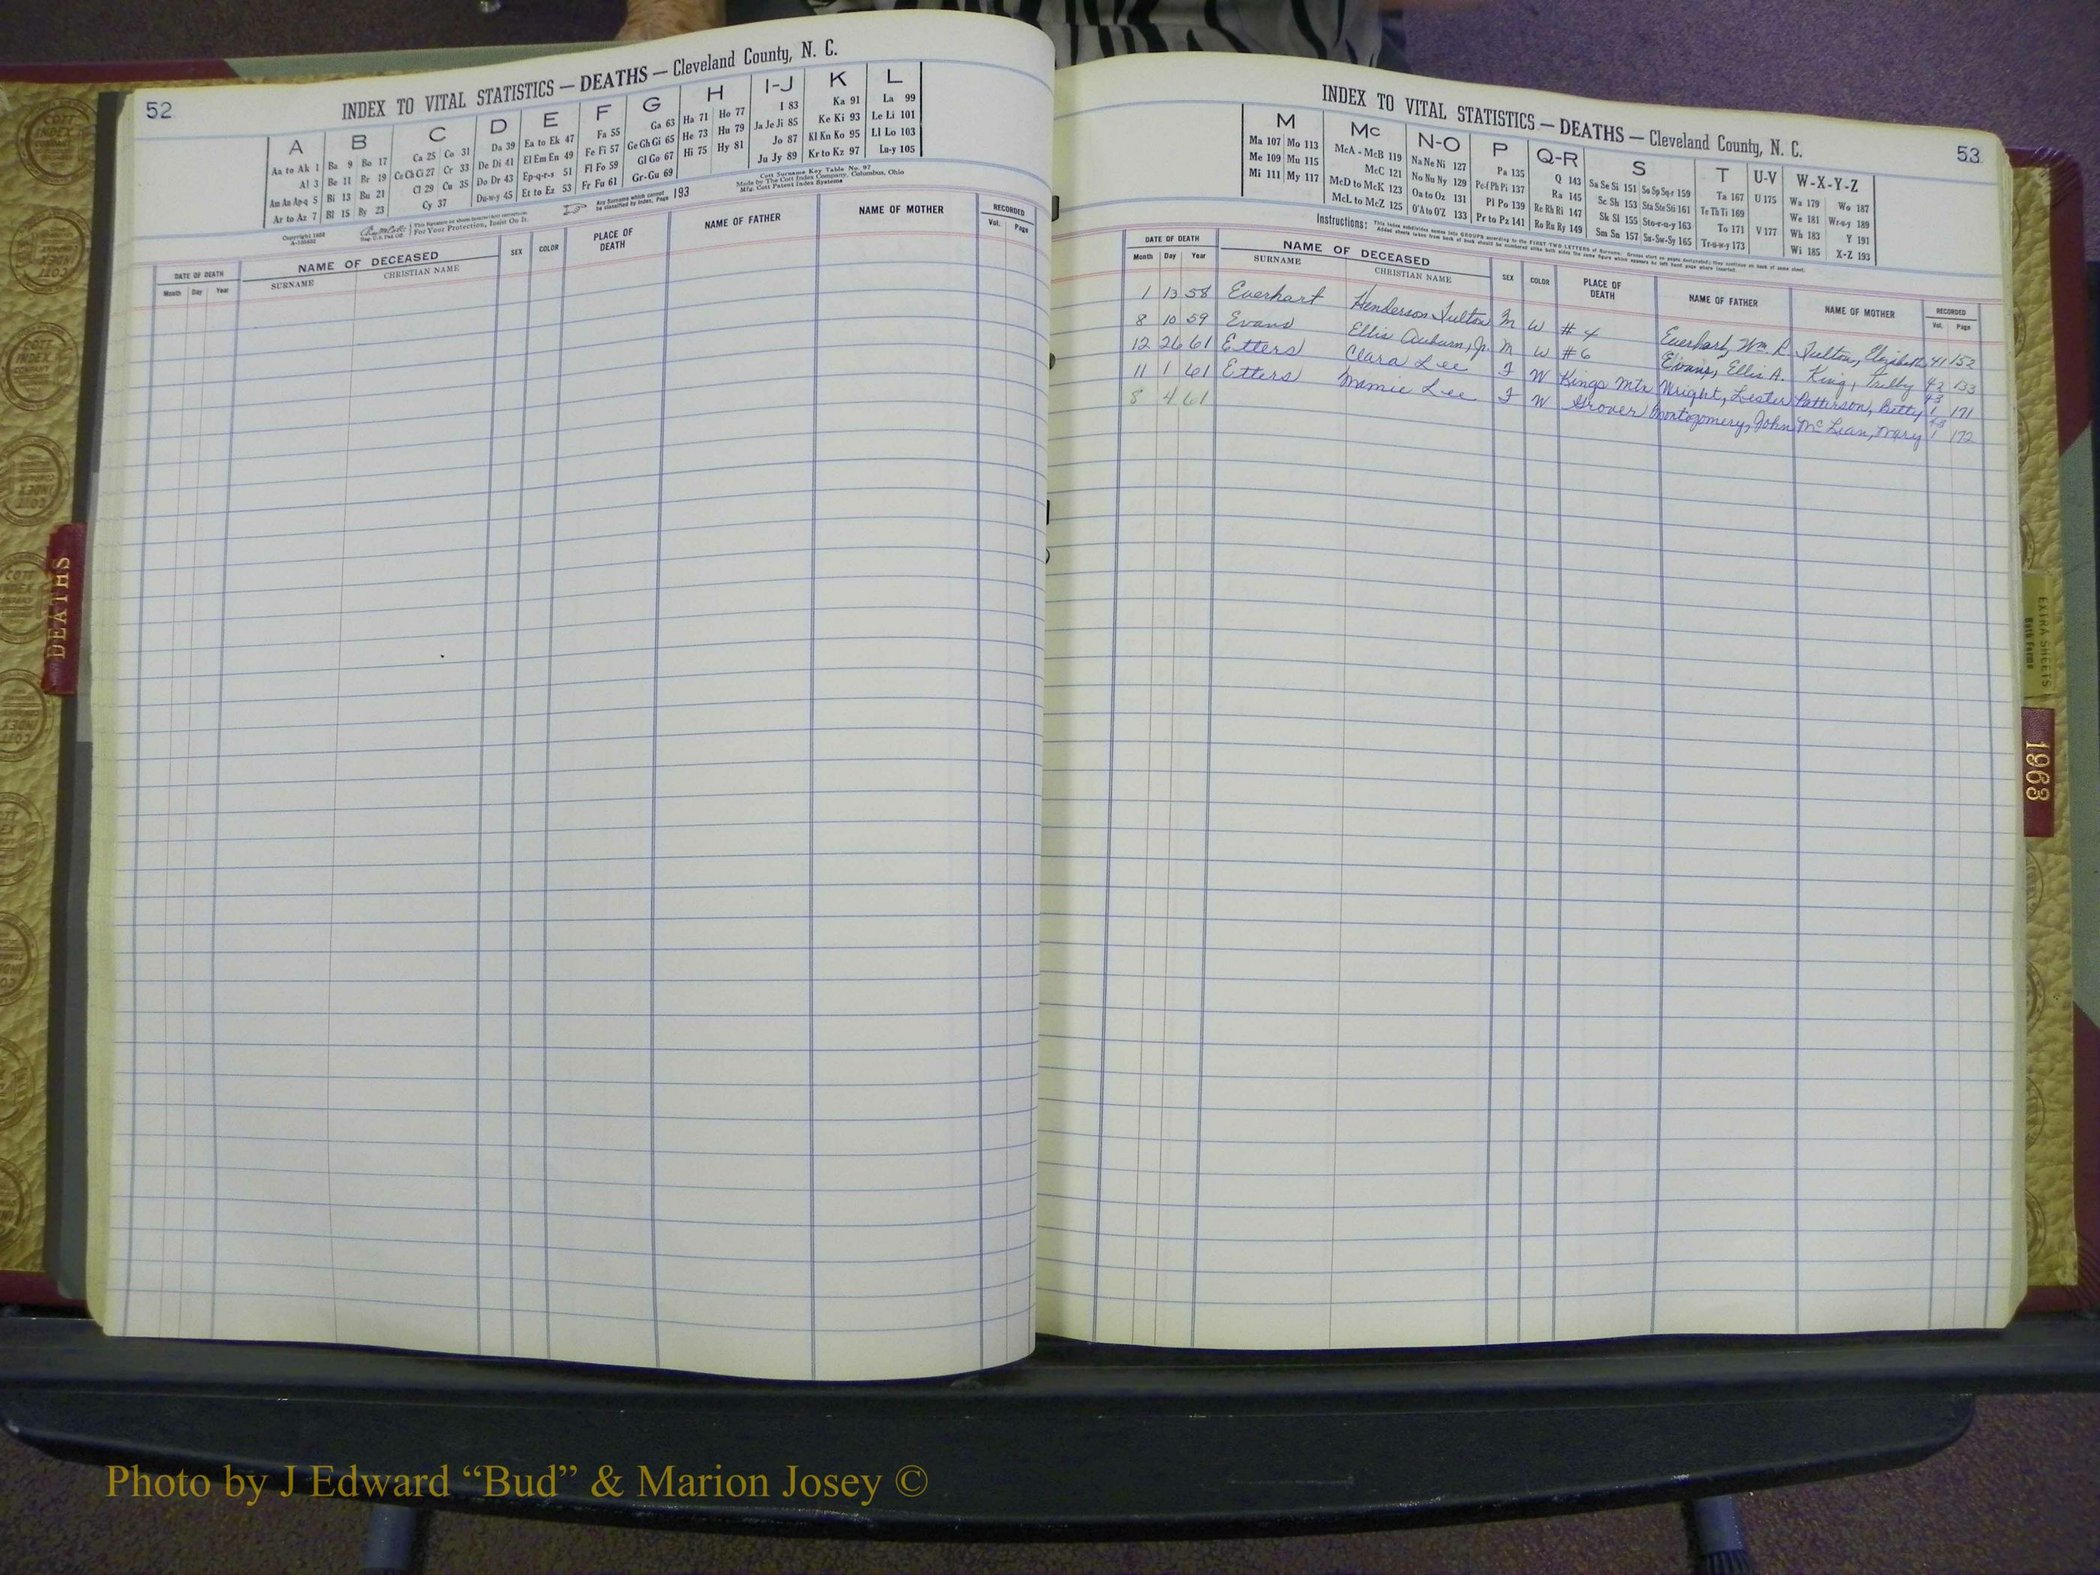 52
INDEX TO VITAL STATISTICS — DEATHS — Cleveland County, N. C.
A B C D E F G H I-J K L
Aa to Ak 1 Ba 9 Bo 17 Ca 25 Co 31 Da 39 Ea to Ek 47 Fa 55 Ga 63 Ha 71 Ho 77 I 83 Ka 91 La 99
Al 3 Be 11 Br 19 Ce Ch Ci 27 Cr 33 De Di 41 El Em En 49 Fe Fi 57 Ge Gh Gi 65 He 73 Hu 79 Ja Je Ji 85 Ke Ki 93 Le Li 101
Am An Ap-q 5 Bi 13 Bu 21 Cl 29 Cu 35 Do Dr 43 Ep-q-r-s 51 Fl Fo 59 Gl Go 67 Hi 75 Hy 81 Jo 87 Kl Kn Ko 95 Ll Lo 103
Ar to Az 7 Bl 15 By 23 Cy 37 Du-w-y 45 Et to Ez 53 Fr Fu 61 Gr-Gu 69 Ju Jy 89 Kr to Kz 97 Lu-y 105
Copyright 1952
For Your Protection, Insist On It.
Any Surname which cannot be classified by Index, Page 193
Cott Surname Key Table No. 97
Made by The Cott Index Company, Columbus, Ohio
Mfg. Cott Patent Index Systems
DATE OF DEATH NAME OF DECEASED SEX COLOR PLACE OF DEATH NAME OF FATHER NAME OF MOTHER RECORDED
Month Day Year SURNAME CHRISTIAN NAME Vol. Page
INDEX TO VITAL STATISTICS — DEATHS — Cleveland County, N. C.
53
M Mc N-O P Q-R S T U-V W-X-Y-Z
Ma 107 Mo 113 McA - McB 119 Na Ne Ni 127 Pa 135 Q 143 Sa Se Si 151 So Sp Sq-r 159 Ta 167 U 175 Wa 179 Wo 187
Me 109 Mu 115 McC 121 No Nu Ny 129 Pe-f Ph Pi 137 Ra 145 Sc Sh 153 Sta Ste Sti 161 Te Th Ti 169 We 181 Wr-u-y 189
Mi 111 My 117 McD to McK 123 Oa to Oz 131 Pl Po 139 Re Rh Ri 147 Sk Sl 155 Sto-r-u-y 163 To 171 V 177 Wh 183 Y 191
McL to McZ 125 O'A to O'Z 133 Pr to Pz 141 Ro Ru Ry 149 Sm Sn 157 Su-Sw-Sy 165 Tr-u-w-y 173 Wi 185 X-Z 193
Instructions: This index subdivides names into GROUPS according to the FIRST TWO LETTERS of Surname.
DATE OF DEATH NAME OF DECEASED SEX COLOR PLACE OF DEATH NAME OF FATHER NAME OF MOTHER RECORDED
Month Day Year SURNAME CHRISTIAN NAME Vol. Page
1 13 58 Everhart Henderson Fulton M W #4 Everhart, Wm. R. Fulton, Elizabeth 41 152
8 10 59 Evans Ellis Auburn, Jr. M W #6 Evans, Ellis A. King, Trilby 42 133
12 26 61 Etters Clara Lee F W Kings Mtn Wright, Lester Patterson, Betty 43 1 171
11 1 61 Etters Mamie Lee F W Grover Montgomery, John McLean, Mary 43 1 172
8 4 61
DEATHS
EXTRA SHEETS
1963
Photo by J Edward “Bud” & Marion Josey ©